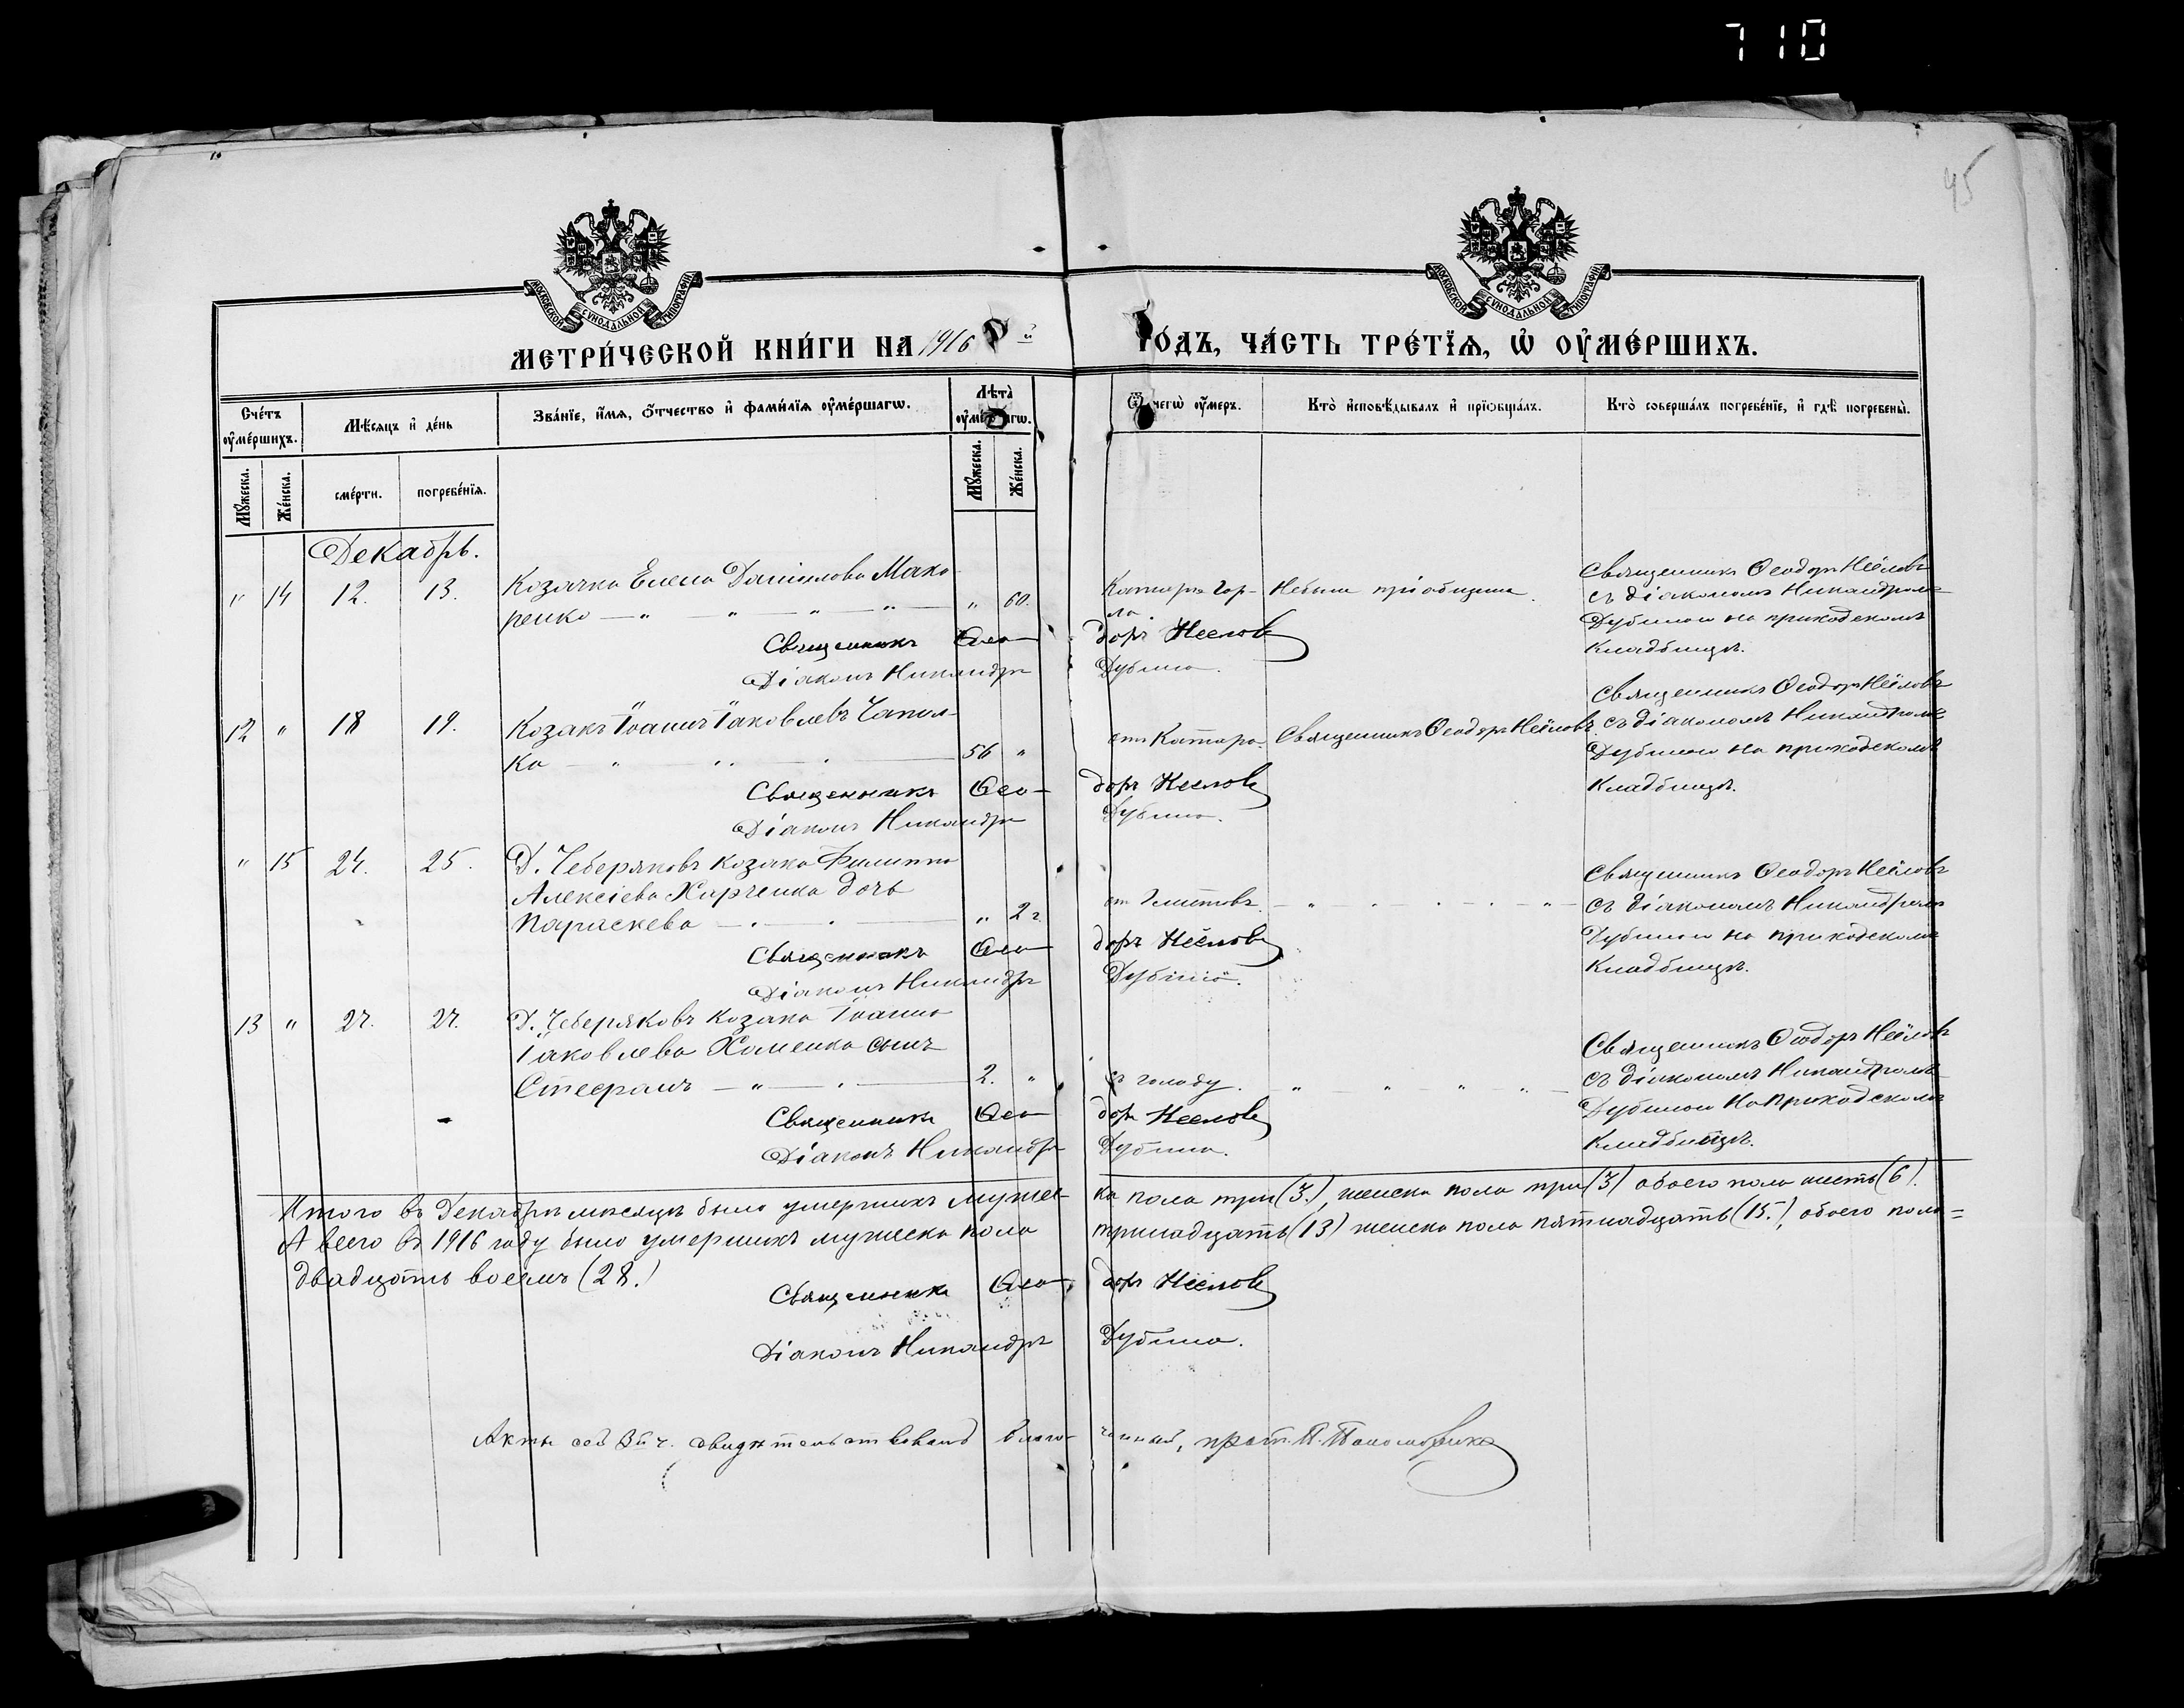 710
45
МОСКОВСКОЙ СѴНОДАЛЬНОЙ ТИПОГРАФІИ
МОСКОВСКОЙ СѴНОДАЛЬНОЙ ТИПОГРАФІИ
МЕТРИ́ЧЕСКОЙ КНИ́ГИ НА 1916 й ГО́ДЪ, ЧА́СТЬ ТРЕ́ТЇѦ, Ѡ҆ ОУ҆МЕ́РШИХЪ.
Сче́тъ оу҆ме́ршихъ.
Мѣ́сяцъ и҆ де́нь
Зва́нїе, и҆́мѧ, ѻ҆́тчество и҆ фами́лїѧ оу҆ме́ршагѡ.
Лѣ́та оу҆ме́ршагѡ.
Ѿ чегѡ̀ оу҆́меръ.
Кто̀ и҆сповѣ́дывалъ и҆ прїѡбща́лъ.
Кто̀ соверша́лъ погребе́нїе, и҆ гдѣ̀ погребены̀.
Мꙋ́жеска. Же́нска.
сме́рти. погребе́нїѧ.
Мꙋ́жеска. Же́нска.
Декабрь.
" 14 12. 13. Козачка Елена Даніилова Мака-
ренко — " — " — " — " — " 60.
Катаръ гор-
ла
Небыла пріобщена.
Священникъ Ѳеодоръ Неёловъ
съ діакономъ Никандромъ
Дубиною на приходскомъ
Кладбищѣ.
Священникъ Ѳео-доръ Неелов
Діаконъ Никандръ Дубина.
12 " 18 19. Козакъ Іоаннъ Іаковлевъ Чапол-
ка — " — " — " — 56 "
отъ Катара.
Священникъ Ѳеодоръ Неёловъ.
Священникъ Ѳеодоръ Неёловъ
съ діакономъ Никандромъ
Дубиною на приходскомъ
Кладбищѣ.
Священникъ Ѳео-доръ Неелов
Діаконъ Никандръ Дубина.
" 15 24. 25. Д. Чеберяковъ козака Филиппа
Алексіева Харченка дочь
Параскева — " — " — " 2 г.
— " — " — " — " —
Священникъ Ѳеодоръ Неёловъ
съ діакономъ Никандромъ
Дубиною на приходскомъ
Кладбищѣ.
Священникъ Ѳео-доръ Неёлов
Діаконъ Никандръ Дубина.
13 " 27. 27. Д. Чеберяковъ козака Іоанна
Іаковлева Хоменка сынъ
Стефанъ — " — " — 2. "
съ голоду. — " — " — " — " —
Священникъ Ѳеодоръ Неёловъ
съ діакономъ Никандромъ
Дубиною на приходскомъ
Кладбищѣ.
Священникъ Ѳео-доръ Неелов
Діаконъ Никандръ Дубина.
Итого въ Декабрѣ мѣсяцѣ было умершихъ мужес-ка пола три (3.), женска пола три (3) обоего пола шесть (6).
А всего въ 1916 году было умершихъ мужеска пола тринадцать (13) женска пола пятнадцать (15.), обоего пола =
двадцать восемь (28.)
Священникъ Ѳео-доръ Неёлов
Діаконъ Никандръ Дубина.
Акты сей 3й ч. свидѣтельствовалъ благо-чинный, прот. П.